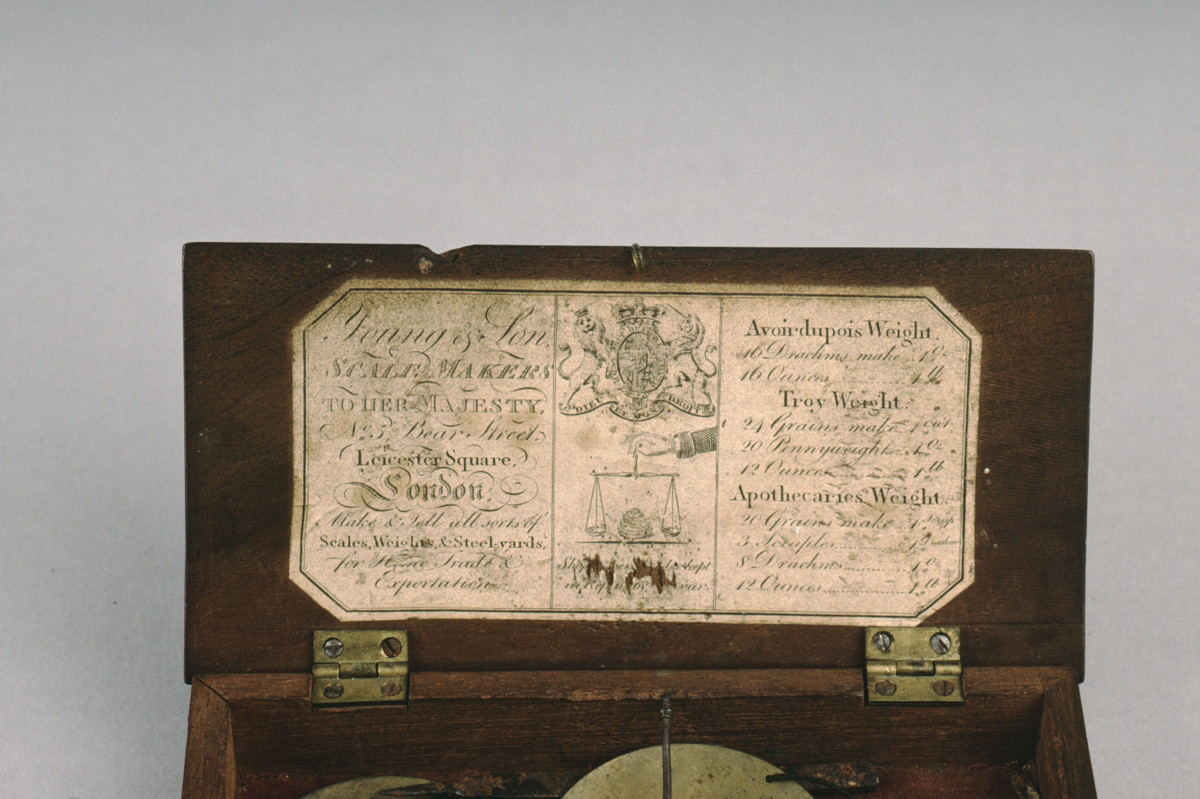 Young & Son,
SCALE MAKERS
TO HER MAJESTY,
No. 5, Bear Street,
Leicester Square,
London,
Make & Sell all sorts of
Scales, Weights, & Steel-yards,
for Home Trade &
Exportation.
DIEU ET MON DROIT
kept
in repair by the Year.
Avoirdupois Weight.
16 Drachms make 1 oz
16 Ounces 1 lb
Troy Weight.
24 Grains make 1 dwt
20 Pennyweights 1 oz
12 Ounces 1 lb
Apothecaries Weight.
20 Grains make 1 Scrup
3 Scruples 1 Drachm
8 Drachms 1 oz
12 Ounces 1 lb